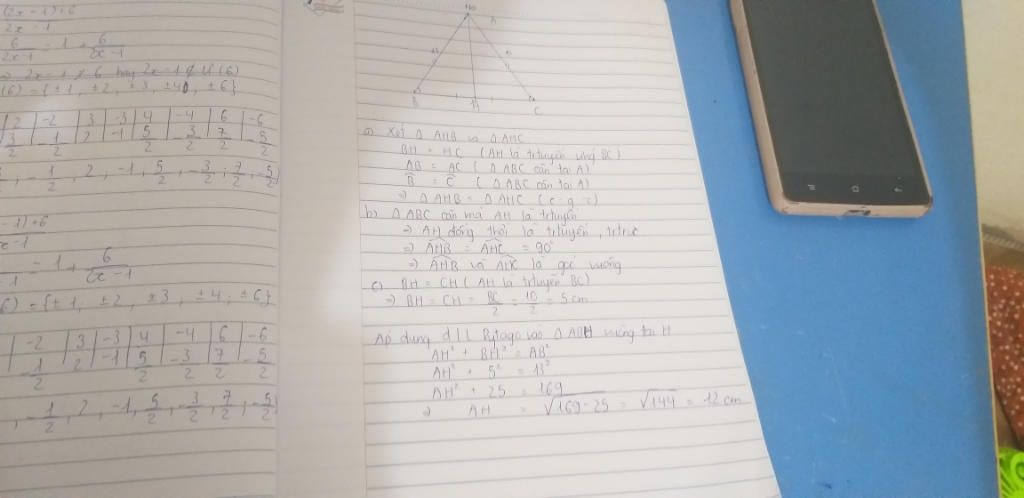 (2x-1)+6
2x-1
6/2x-1 = 1 + 6/2x-1
⇒ 2x-1 ∉ 6 hay 2x-1 ∉ Ư(6)
(6) = {±1, ±2, ±3, ±4, ±6}
2 | -2 | 3 | -3 | 4 | -4 | 6 | -6
3/2 | -1/2 | 2 | -1 | 5/2 | -3/2 | 7/2 | -5/2
, -1/2, 2, -1, 5/2, -3/2, 7/2, -5/2
-1)+6
x-1
-1 = 1 + 6/2x-1
6) = {±1, ±2, ±3, ±4, ±6}
-2 | 3 | -3 | 4 | -4 | 6 | -6
-1/2 | 2 | -1 | 5/2 | -3/2 | 7/2 | -5/2
, -1/2, 2, -1, 5/2, -3/2, 7/2, -5/2
A
B
H
C
a) Xét Δ AHB và Δ AHC
BH = HC (AH là trtuyến ứng BC)
AB = AC (Δ ABC cân tại A)
B̂ = Ĉ (Δ ABC cân tại A)
⇒ Δ AHB = Δ AHC (c.g.c)
b) Δ ABC cân mà AH là trtuyến
⇒ AH đồng thời là trtuyến, trtrực
⇒ AHB = AHC = 90°
⇒ AHB và AHC là góc vuông
c) BH = CH (AH là trtuyến BC)
⇒ BH = CH = BC/2 = 10/2 = 5 cm
Áp dụng đ/l Pytago vào Δ ABH vuông tại H
AH² + BH² = AB²
AH² + 5² = 13²
AH² + 25 = 169
⇒ AH = √169-25 = √144 = 12 cm